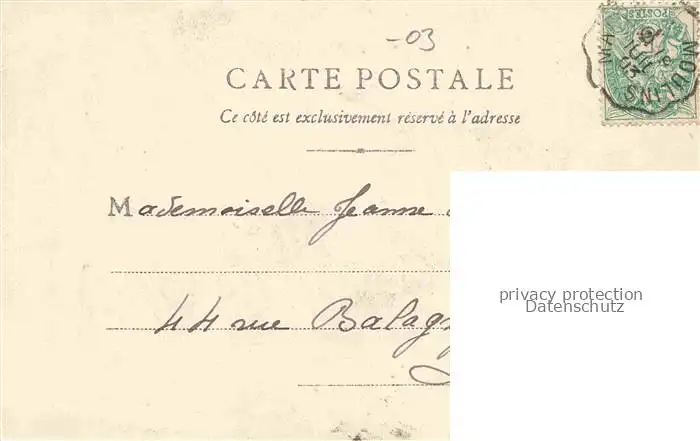 -03
POSTES
MOULINS
CARTE POSTALE
Ce côté est exclusivement réservé à l'adresse
Mademoiselle Jeanne
44 rue
privacy protection
Datenschutz